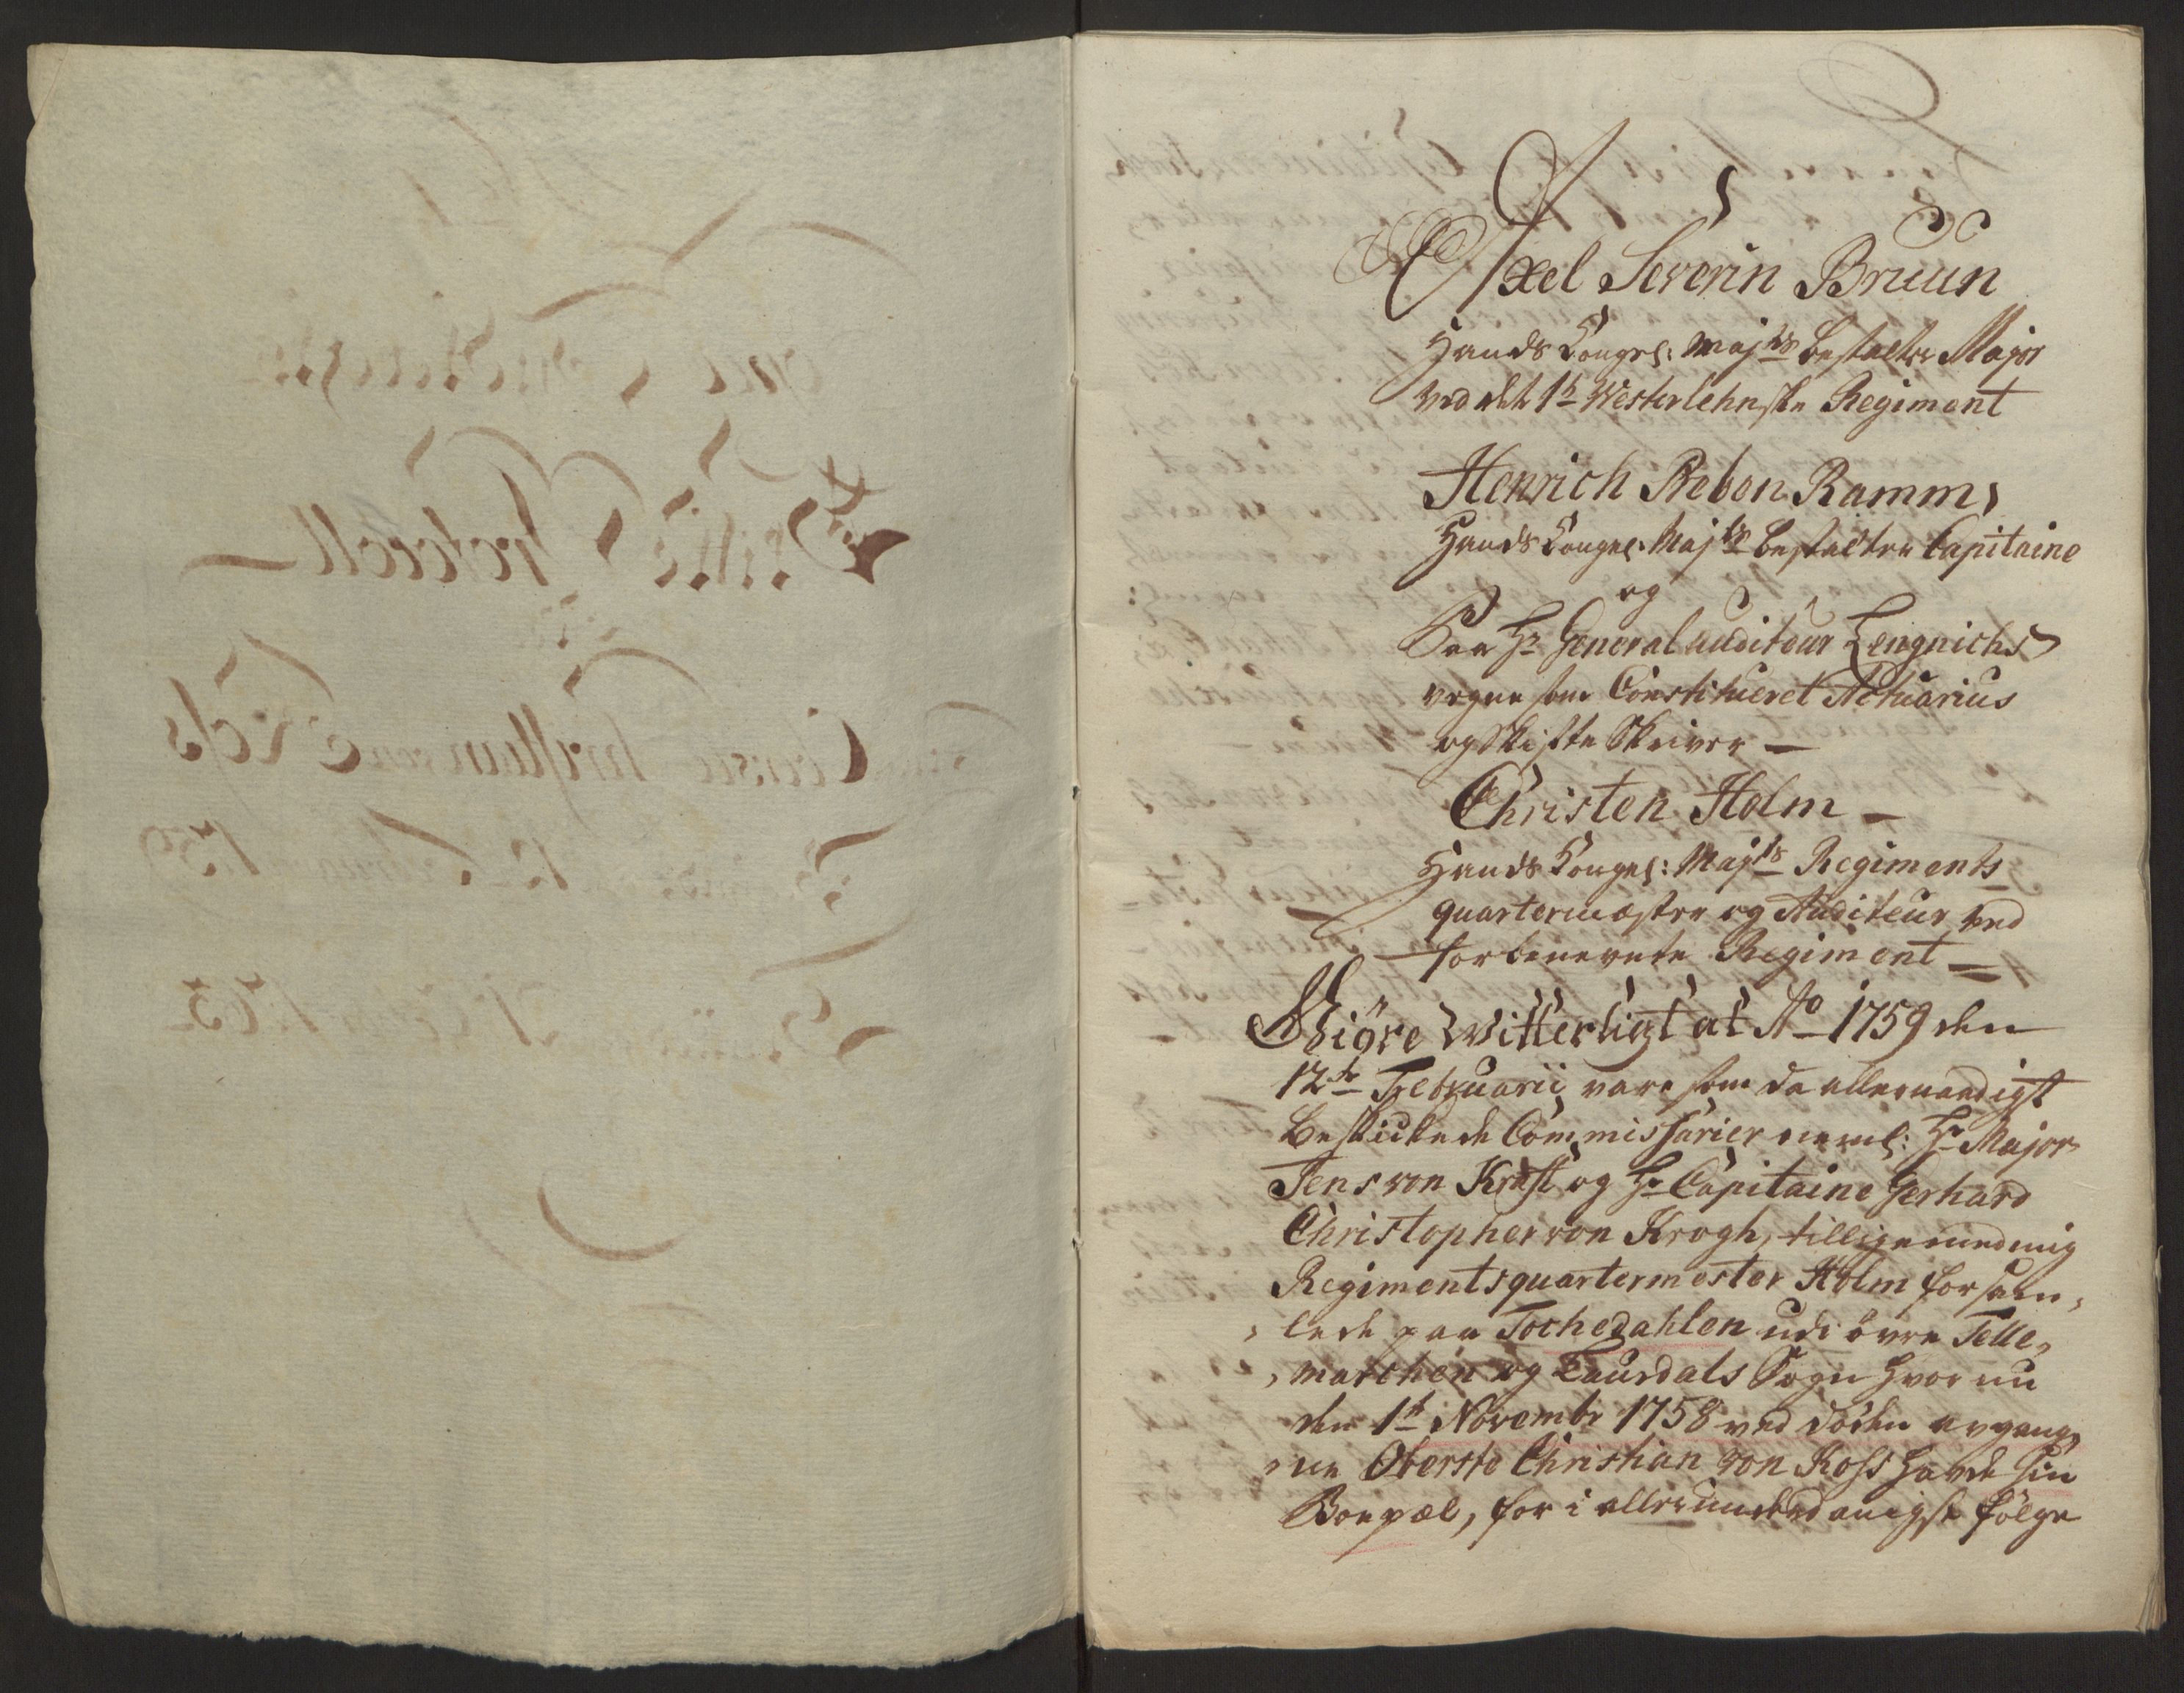 Axel Severin Bruun
Hands Kongel: Majts bestalter Major
ved det 1te Westerlehnske Regiment
Henrich Preben Ramm,
Hands Kongel: Majts bestalter Capitaine
og
Paa Hr Generalauditeur Lengnichs
vegne som Constitueret Actuarius
og Skifte Skriver —
Christen Holm —
Hands Kongel: Majts Regiments
quartermæster og Auditeur ved
forbenevnte Regiment —
Giöre Witterligt at Ao 1759 den
12te Februarii vare som da allernaadigst
Beskickede Commissarier neml: Hr Major
Jens von Krafft og Hr Capitaine Gerhard
Christopher von Krogh, tilligemed mig
Regimentsquartermester Holm forsam,
, lede paa Tochedahlen udi övre Telle,
, marchen og Laurdals Sogn hvor nu
den 1te Novembr 1758 ved döden avgang,
, ne Oberste Christian von Koss havde sin
Boepæl, for i allerunderdanigst fölge